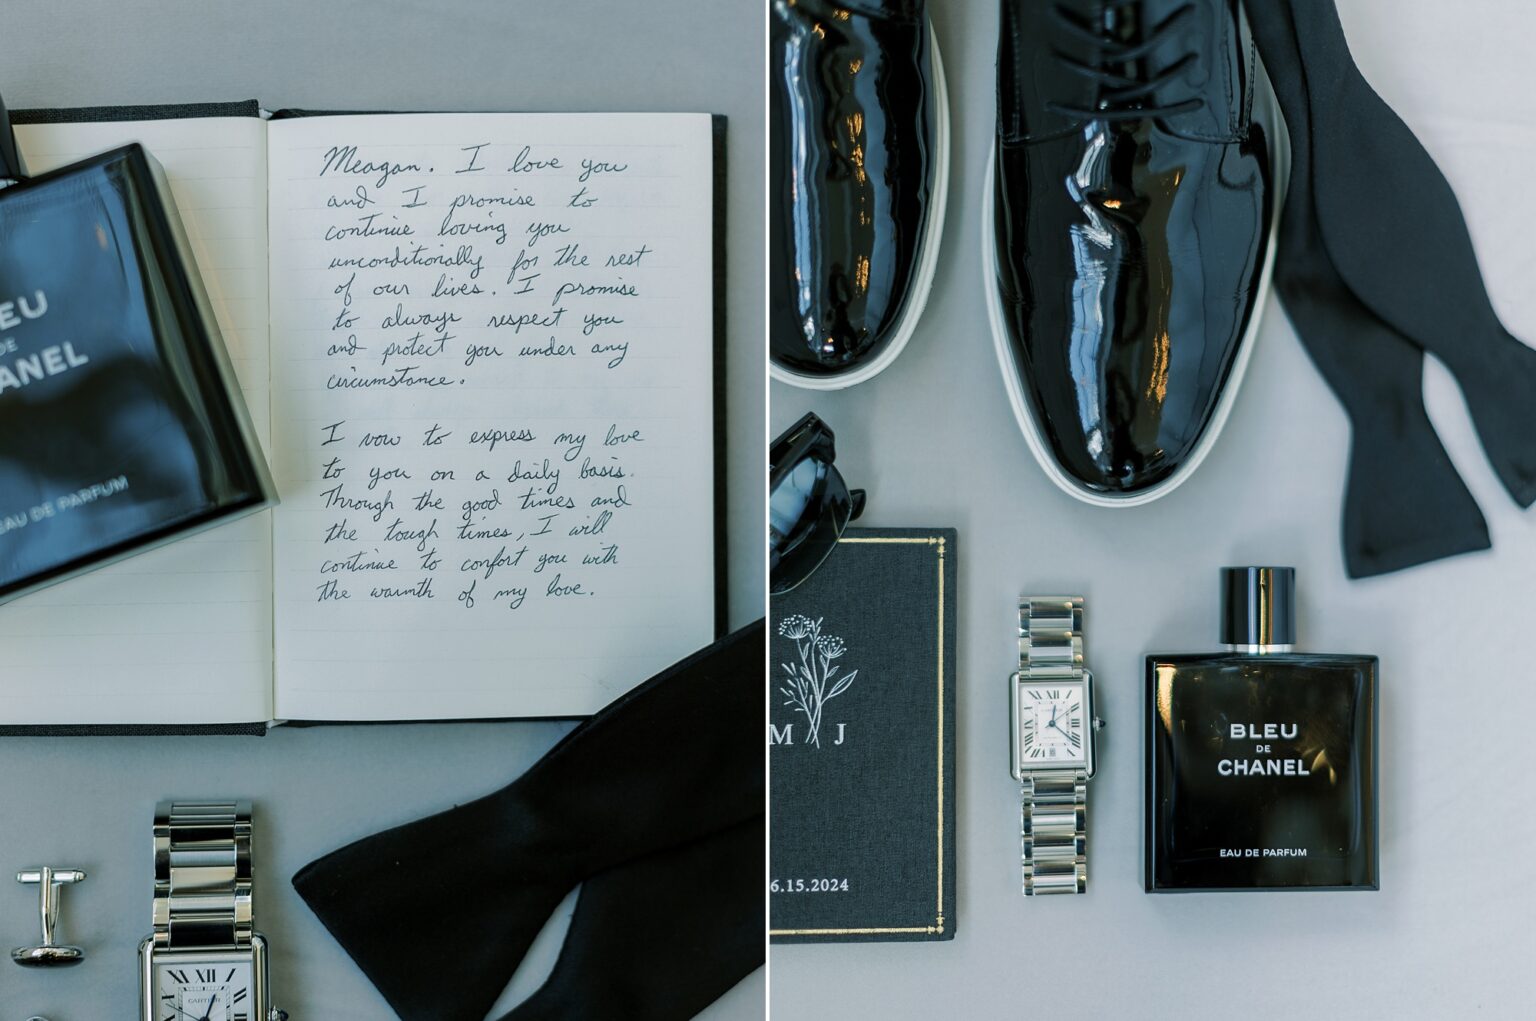 EU
DE
ANEL
EAU DE PARFUM
Meagan. I love you
and I promise to
continue loving you
unconditionally for the rest
of our lives. I promise
to always respect you
and protect you under any
circumstance.
I vow to express my love
to you on a daily basis.
Through the good times and
the tough times, I will
continue to comfort you with
the warmth of my love.
XI XII I
CARTIER
M J
6.15.2024
XII
BLEU
DE
CHANEL
EAU DE PARFUM